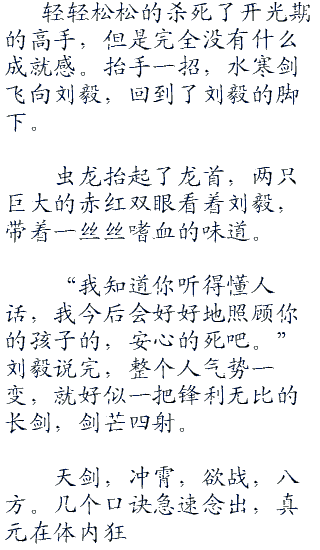 轻轻松松的杀死了开光期
的高手，但是完全没有什么
成就感。抬手一招，水寒剑
飞向刘毅，回到了刘毅的脚
下。
虫龙抬起了龙首，两只
巨大的赤红双眼看着刘毅，
带着一丝丝嗜血的味道。
“我知道你听得懂人
话，我今后会好好地照顾你
的孩子的，安心的死吧。”
刘毅说完，整个人气势一
变，就好似一把锋利无比的
长剑，剑芒四射。
天剑，冲霄，欲战，八
方。几个口诀急速念出，真
元在体内狂